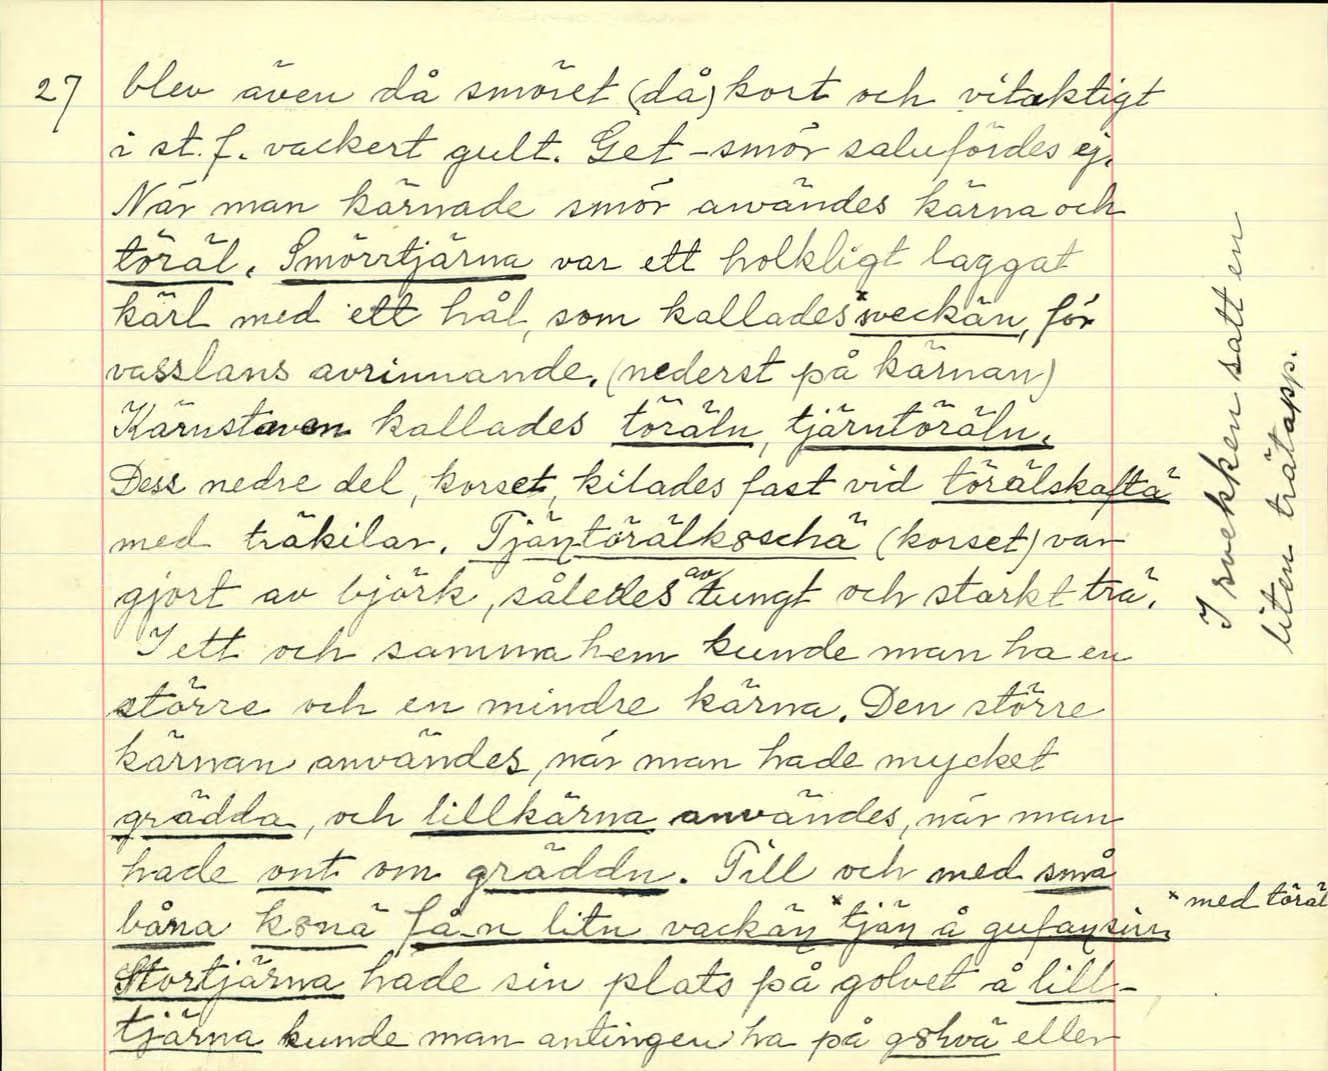 27 blev även då smöret (då) kort och vitaktigt
i st. f. vackert gult. Get-smör salufördes ej.
När man kärnade smör användes kärna och
töräl. Smörrtjärna var ett holkligt laggat
kärl med ett hål, som kallades *sveckän, för
vasslans avrinnande. (nederst på kärnan)
Kärnstaven kallades töräln, tjärntöräln.
Dess nedre del, korset, kilades fast vid törälskaftä
med träkilar. Tjäntörälk8schä (korset) var
gjort av björk, således av tungt och starkt trä.
I ett och samma hem kunde man ha en
större och en mindre kärna. Den större
kärnan användes, när man hade mycket
grädda, och lillkärna användes, när man
hade ont om gräddn. Till och med små
båna k8nä få-n litn vackän *tjän å gufansinn
Stortjärna hade sin plats på golvet å lill-
tjärna kunde man antingen ha på g8hvä eller
* med töräl
I svekken satt en
liten trätapp.